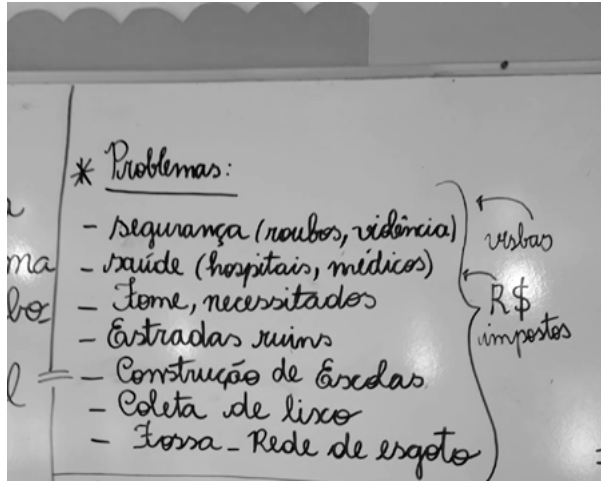 * Problemas:
- segurança (roubos, violência)
- saúde (hospitais, médicos)
- Fome, necessitados
- Estradas ruins
- Construção de Escolas
- Coleta de lixo
- Fossa - Rede de esgoto
R$
impostos
ma